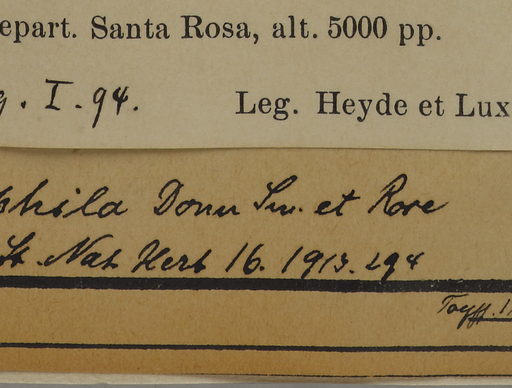 epart. Santa Rosa, alt. 5000 pp.
g. I. 94. Leg. Heyde et Lux
phila Donn Sm. et Rose
St. Nat Herb 16. 1913. 294